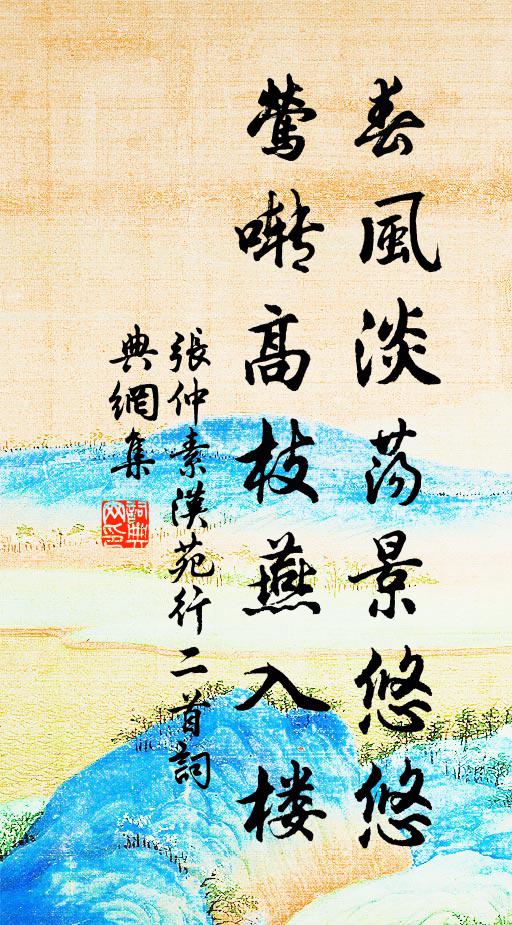 春風淡荡景悠悠
鶯囀高枝燕入楼
張仲素漢苑行二首詞
典網集
詞典
网印